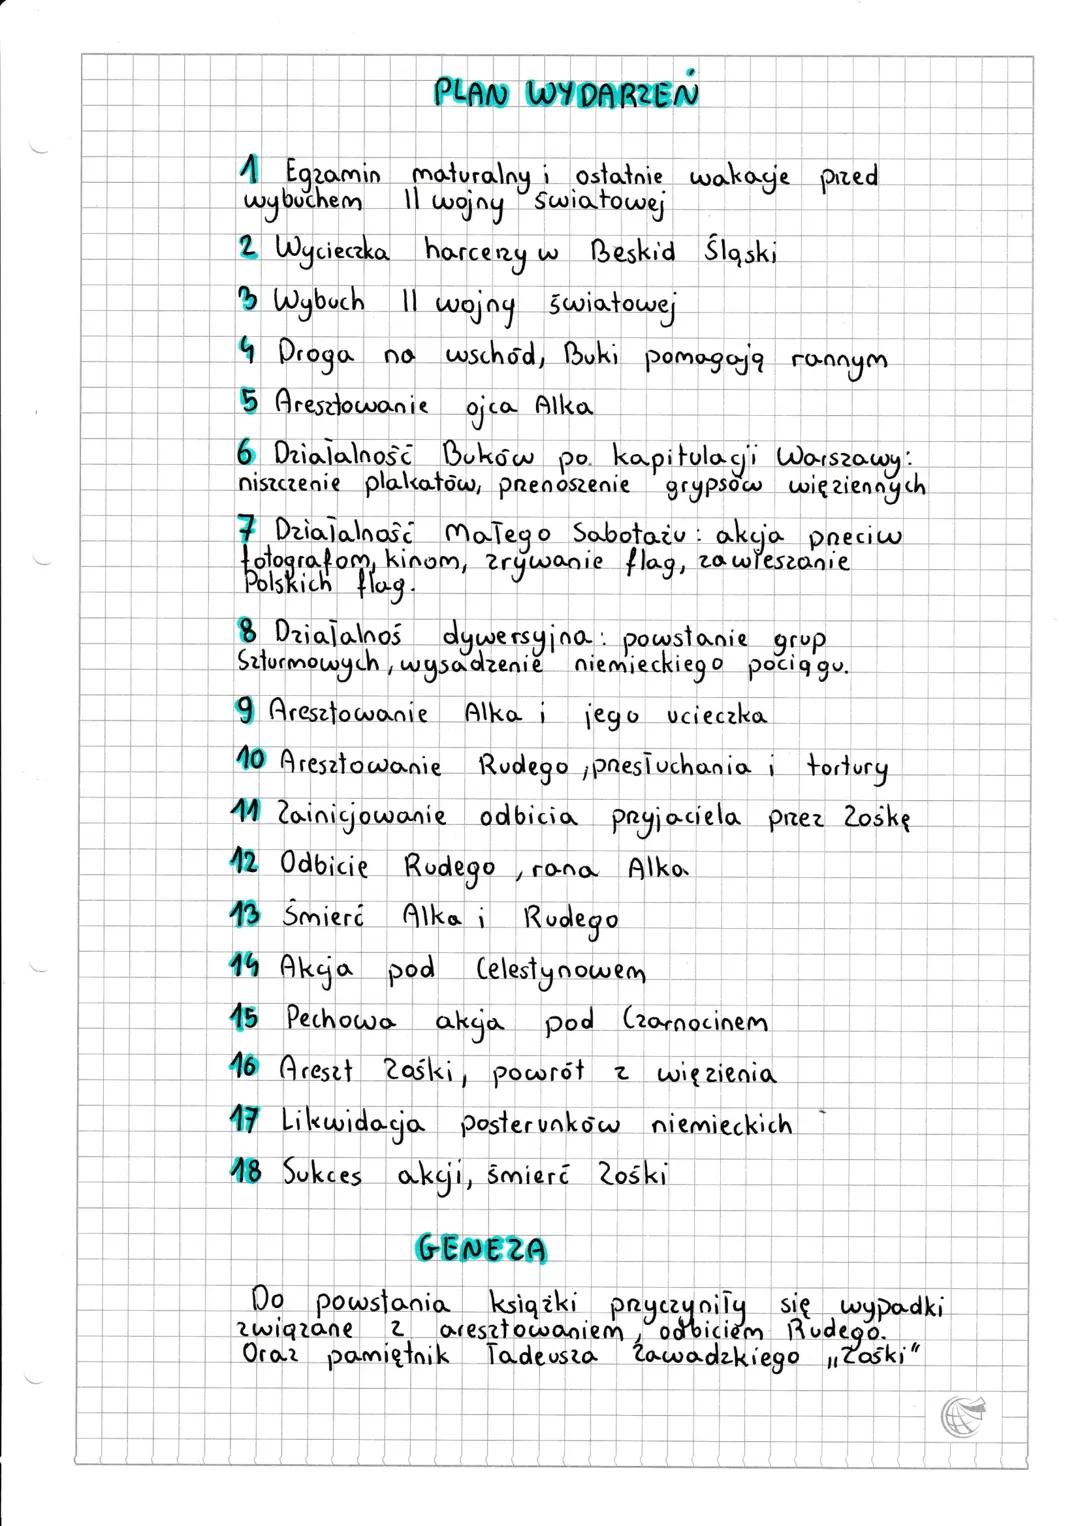 PLAN WYDARZEŃ
1 Egzamin maturalny i ostatnie wakacje przed
wybuchem II wojny światowej
2 Wycieczka harcerzy w Beskid Śląski
3 Wybuch II wojny światowej
4 Droga na wschód, Buki pomagają rannym
5 Aresztowanie ojca Alka
6 Działalność Buków po kapitulacji Warszawy:
niszczenie plakatów, przenoszenie grypsów więziennych
7 Działalność Małego Sabotażu: akcja przeciw
fotografom, kinom, zrywanie flag, zawieszanie
Polskich flag.
8 Działalnoś dywersyjna: powstanie grup
Szturmowych, wysadzenie niemieckiego pociągu.
9 Aresztowanie Alka i jego ucieczka
10 Aresztowanie Rudego, przesłuchania i tortury
11 Zainicjowanie odbicia przyjaciela przez Zośkę
12 Odbicie Rudego, rana Alka
13 Śmierć Alka i Rudego
14 Akcja pod Celestynowem
15 Pechowa akcja pod Czarnocinem
16 Areszt Zośki, powrót z więzienia
17 Likwidacja posterunków niemieckich
18 Sukces akcji, śmierć Zośki
GENEZA
Do powstania książki przyczyniły się wypadki
związane z aresztowaniem, odbiciem Rudego.
Oraz pamiętnik Tadeusza Zawadzkiego „Zośki"